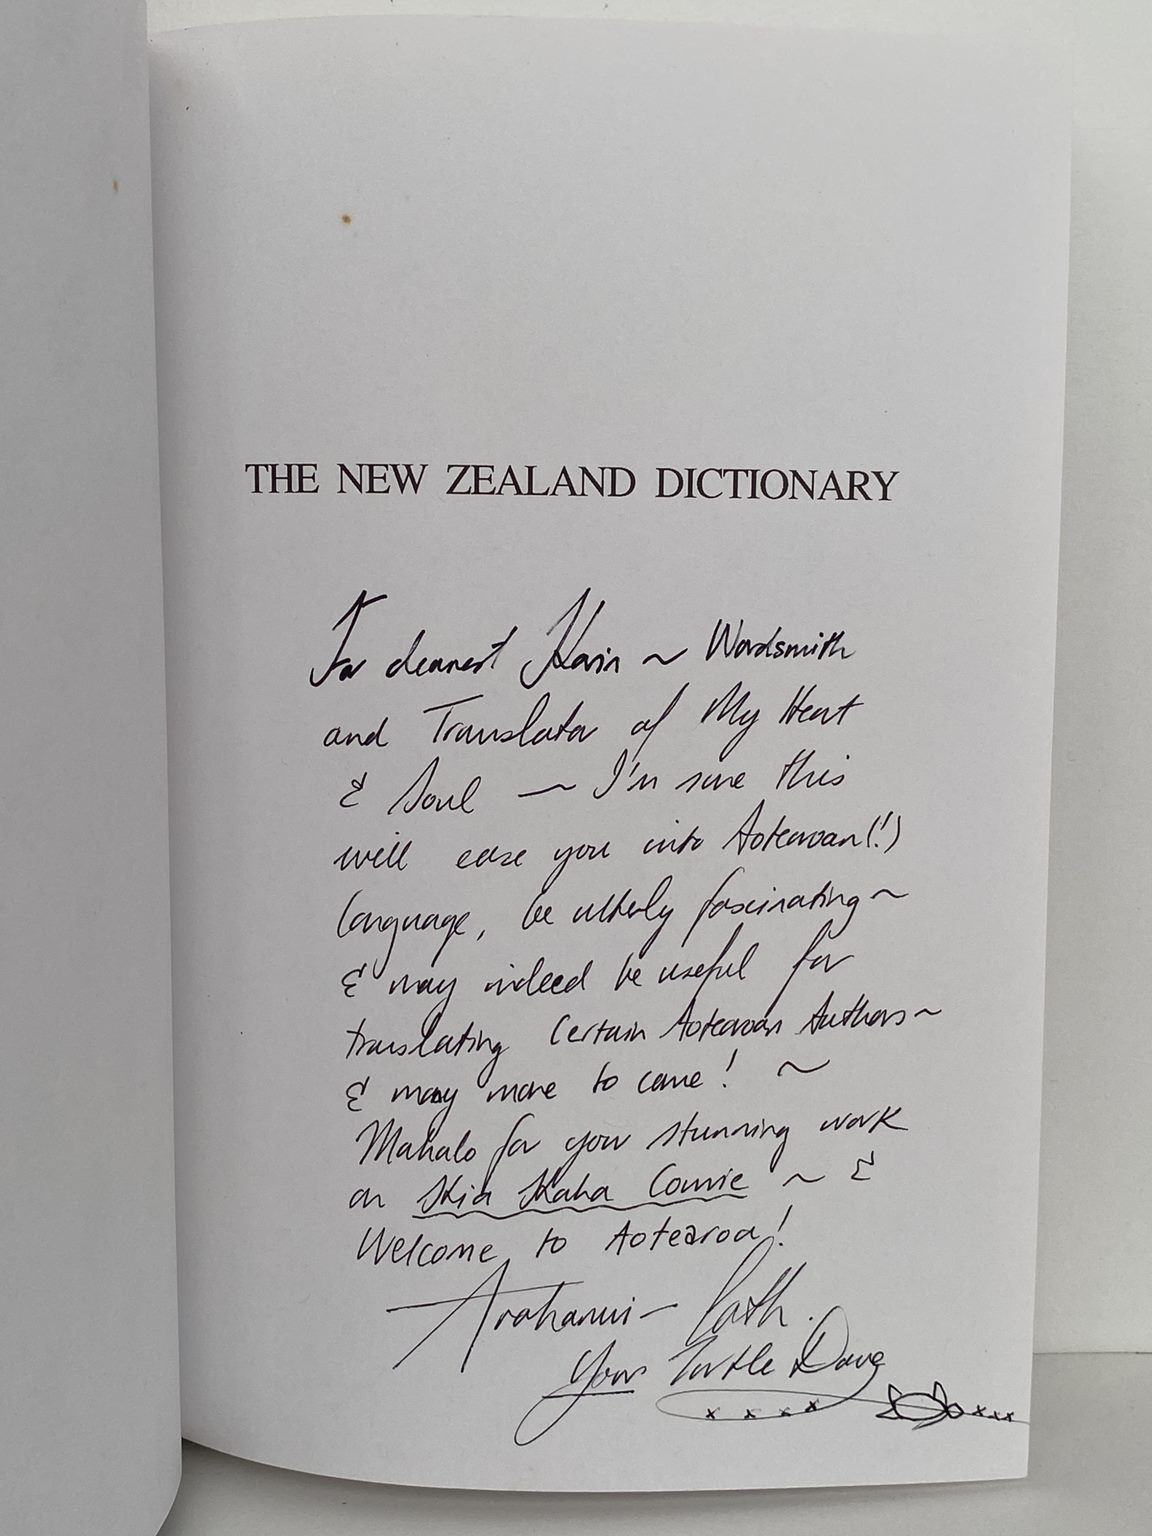 THE NEW ZEALAND DICTIONARY
For dearest Karin ~ Wordsmith
and Translator of My Heart
& Soul — I'm sure this
will ease you into Aotearoan(!)
language, be utterly fascinating ~
& may indeed be useful for
translating Certain Aotearoan Authors ~
& may more to come! ~
Mahalo for your stunning work
on Kia Kaha Connie ~ &
Welcome to Aotearoa!
Arohanui — Cath.
Your Turtle Dove
x x x x x x x